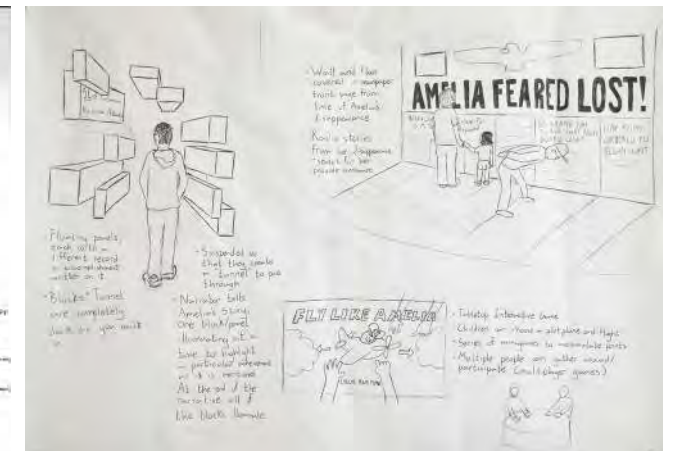 · Floating panels,
each with a
different record
or accomplishment
written on it.
· "Blocks" Tunnel
are completely
dark as you walk
in
· Suspended so
that they create
a "tunnel" to pass
through
· Narrator tells
Amelia's story,
one block/panel
illuminating at a
time to highlight
a particular achievement
as it is narrated.
At the end of the
narrative all of
the blocks illuminate
· Wall and floor
covered in newspaper
front page from
time of Amelia's
disappearance
· Radio stories
from her disappearance
AMELIA FEARED LOST!
FLY LIKE AMELIA
· Tabletop Interactive Game
· Children can choose an airplane and maps
· Series of minigames to accumulate points
· Multiple people can gather around/
participate (multiplayer games)